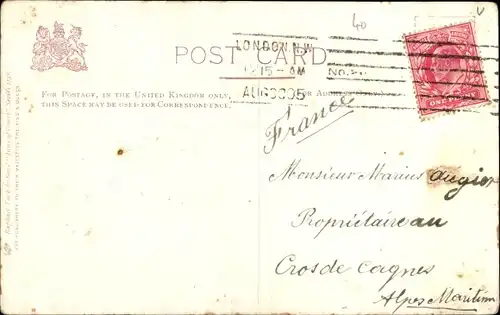 40
LONDON.N.W
POST CARD
15 - AM
AUG 05
FOR POSTAGE, IN THE UNITED KINGDOM ONLY,
THIS SPACE MAY BE USED FOR CORRESPONDENCE.
FOR ADDRESS
France
ONE PENNY
Monsieur Marius Augier
Propriétaire au
Cros de Cagnes
Alpes Maritim